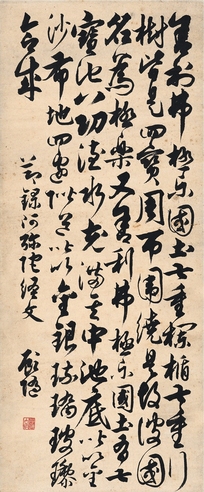 舍利弗極樂國土七重欄楯七重行
樹皆是四寶周帀圍繞是故彼國
名爲極樂又舍利弗極樂國土有七
寶池八功德水充滿其中池底純以金
沙布地四邊階道以金銀琉璃玻瓈
合成
節錄阿彌陀經文